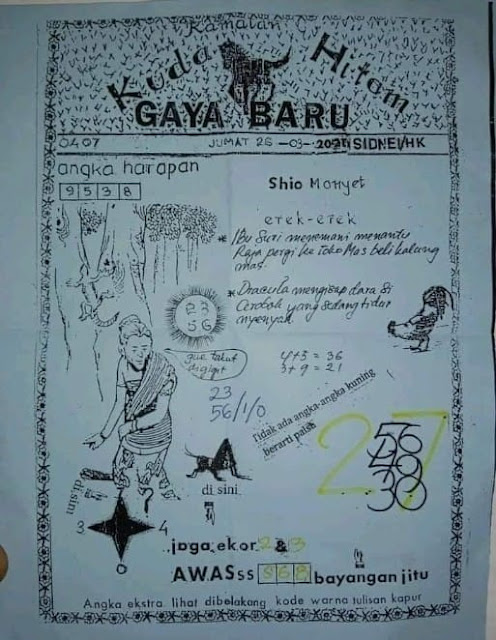 Ramalan
Kuda Hitam
GAYA BARU
0407 JUMAT 26-03-2021 SIDNEI/HK
angka harapan
9538
Shio Monyet
erek-erek
* Ibu Suri menemani menantu
Raja pergi ke toko Mas beli kalung
mas.
* Dracula mengisap dara Si
Ceroboh yang sedang tidur
nyenyak
23
56
gue takut
digigit
4+3=36
3+9=21
23
56/1/0
Tidak ada angka-angka kuning
berarti palsu
27
56
49
30
di sini
di sini
?
3 4
0
jaga ekor 2 & 3
AWASss 368 bayangan jitu
Angka ekstra lihat dibelakang kode warna tulisan kapur